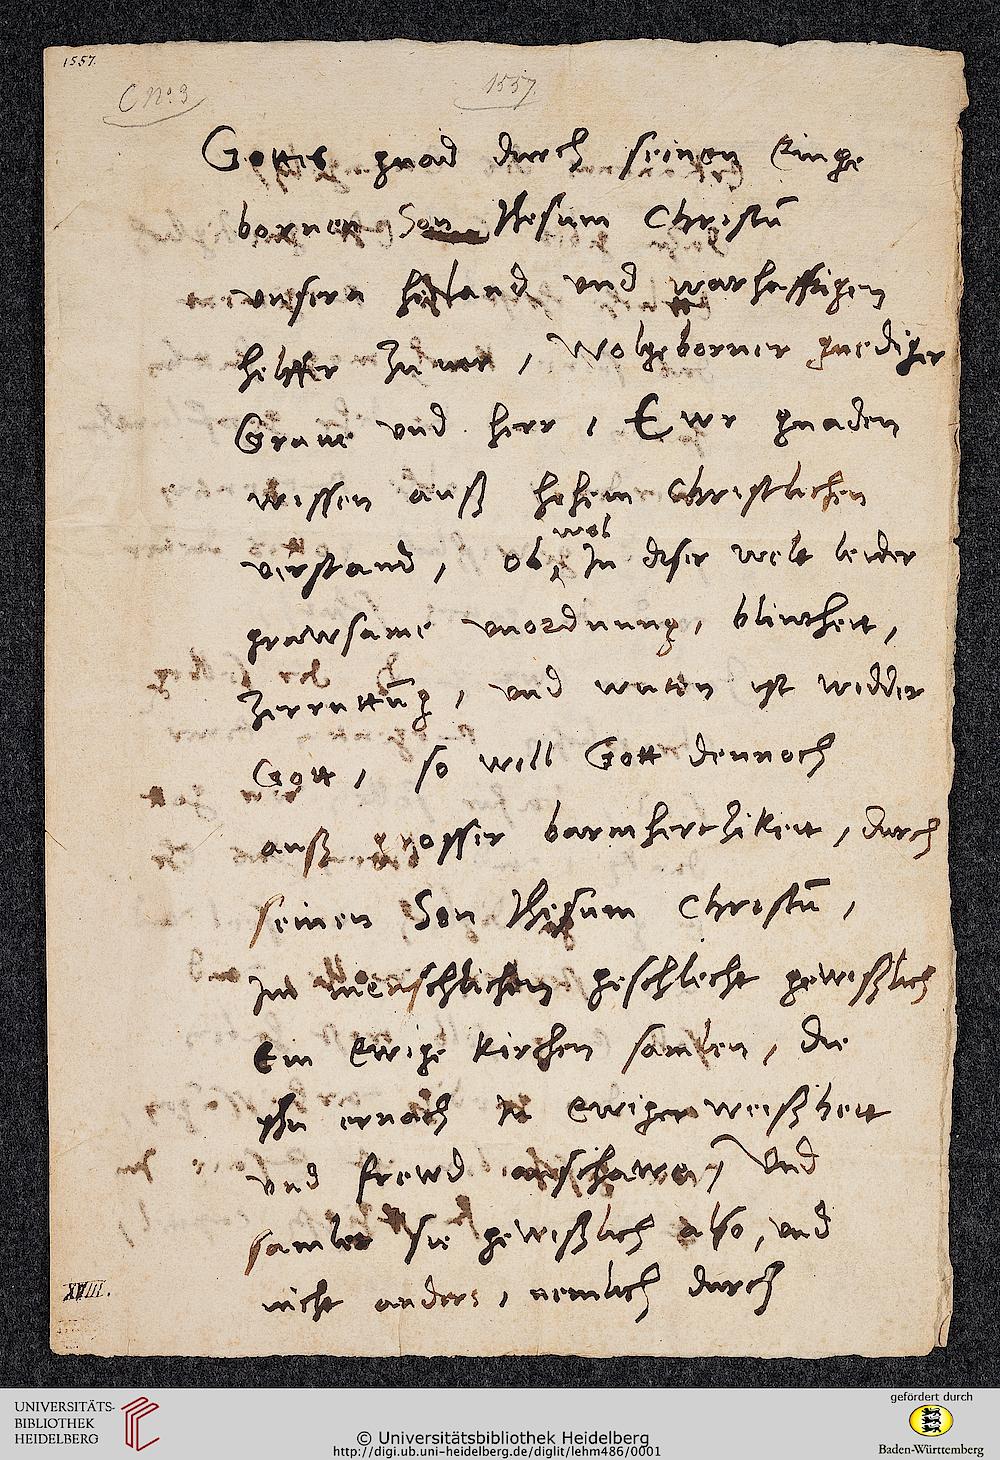 1557.
C No. 3
1557.
Gottes gnad durch seinen Einge
bornen Son Jhesum Christū
unsern heiland und warhafftigen
helffer zuuor, Wolgeborner gnediger
Graue und herr, E wr gnaden
wissen auß hohem Christlichen
verstand, ob wol In diser welt leider
grawsame unordnung, blintheit,
Zerruttūg, und wuten ist widder
Gott, so will Gott dennoch
auß grosser barmhertzikeit, durch
seinen Son Jhesum Christū,
Im menschlichen geschlecht gewißlich
Ein Ewige kirchen samlen, die
yhn ernach In Ewiger weißheit
und frewd anschawe, Und
samlet sie gewißlich also, und
nicht anders, nemlich durch
XVIII.
UNIVERSITÄTS-
BIBLIOTHEK
HEIDELBERG
© Universitätsbibliothek Heidelberg
http://digi.ub.uni-heidelberg.de/diglit/lehm486/0001
gefördert durch
Baden-Württemberg